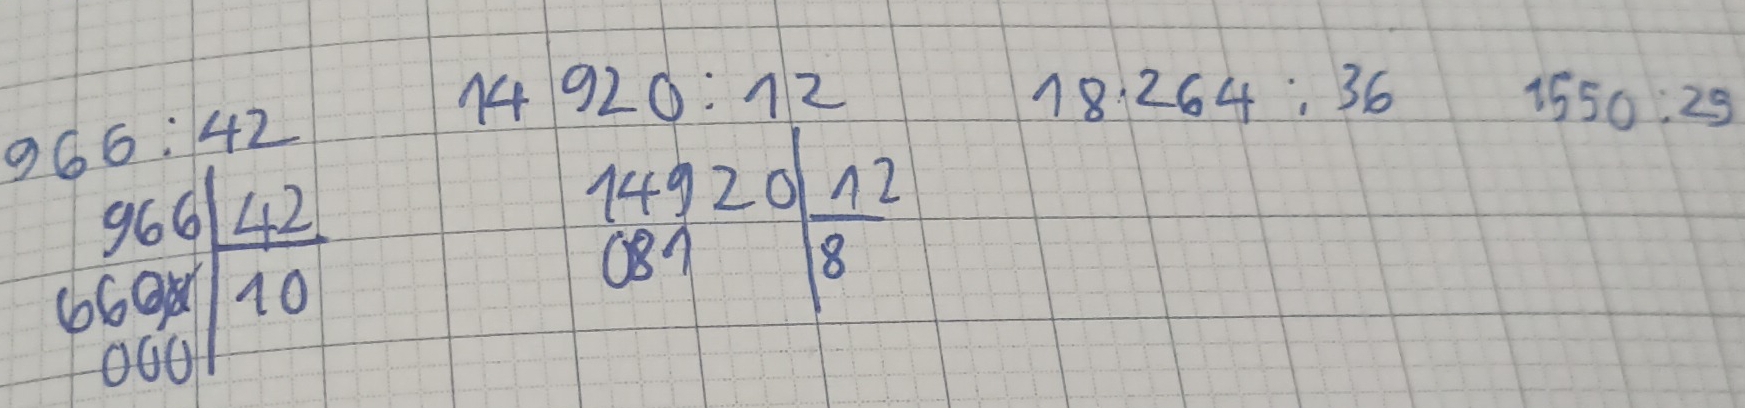 966:42
14 920:12
18.264:36
1550:29
966 42
660 10
000
14920 12
081 8